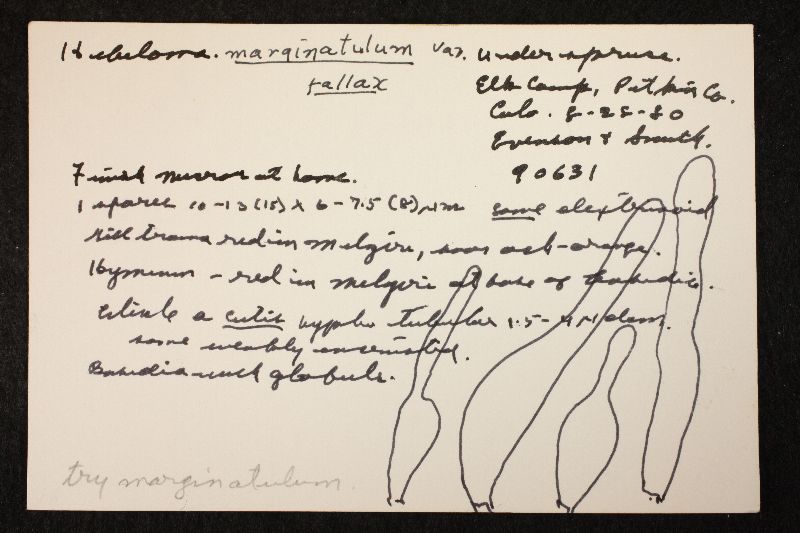 Hebeloma. marginatulum var. under spruce.
fallax Elk Camp, Pitkin Co.
Colo. 8-28-80
Evenson & Smith.
90631
Finish micros at home.
spores 10-13(15) x 6-7.5(8) µm some dextrinoid
Gill trama red in melzers, soon och-orange.
Hymenium - red in melzers at base of basidia.
Cuticle a cutis hyphae tubular 1.5-4 µ diam.
some weakly incrusted.
Basidia with globule.
try marginatulum.